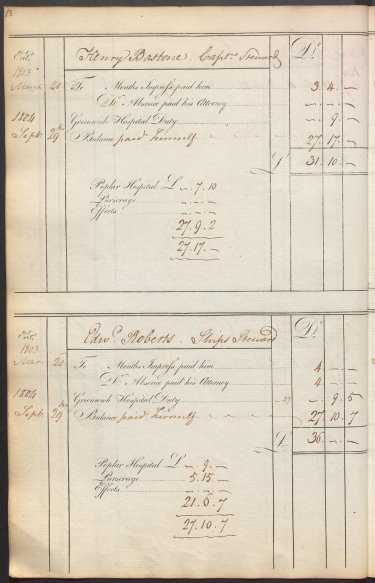 13
Ent.
1803
March 20
1804
Sept. 29
Henry Bastone. Capt.s Steward
Dr.
To Months Impress paid him 3. 4. —
Do. Absence paid his Attorney — . — . —
Greenwich Hospital Duty — . 9. —
Balance paid himself 27. 17. —
£ 31. 10. —
Poplar Hospital £ — . 7. 10
Pursurage — . — . —
Effects — . — . —
27. 9. 2
27. 17. —
Ent.
1803
Mar. 20
1804
Sept. 29
Edwd. Roberts. Ships Steward
Dr.
To Months Impress paid him 4. — . —
Do. Absence paid his Attorney 4. — . —
Greenwich Hospital Duty — . 9. 5
Balance paid himself 27. 10. 7
£ 36. — . —
Poplar Hospital £ — . 9. —
Pursurage 5. 15. —
Effects — . — . —
21. 6. 7
27. 10. 7